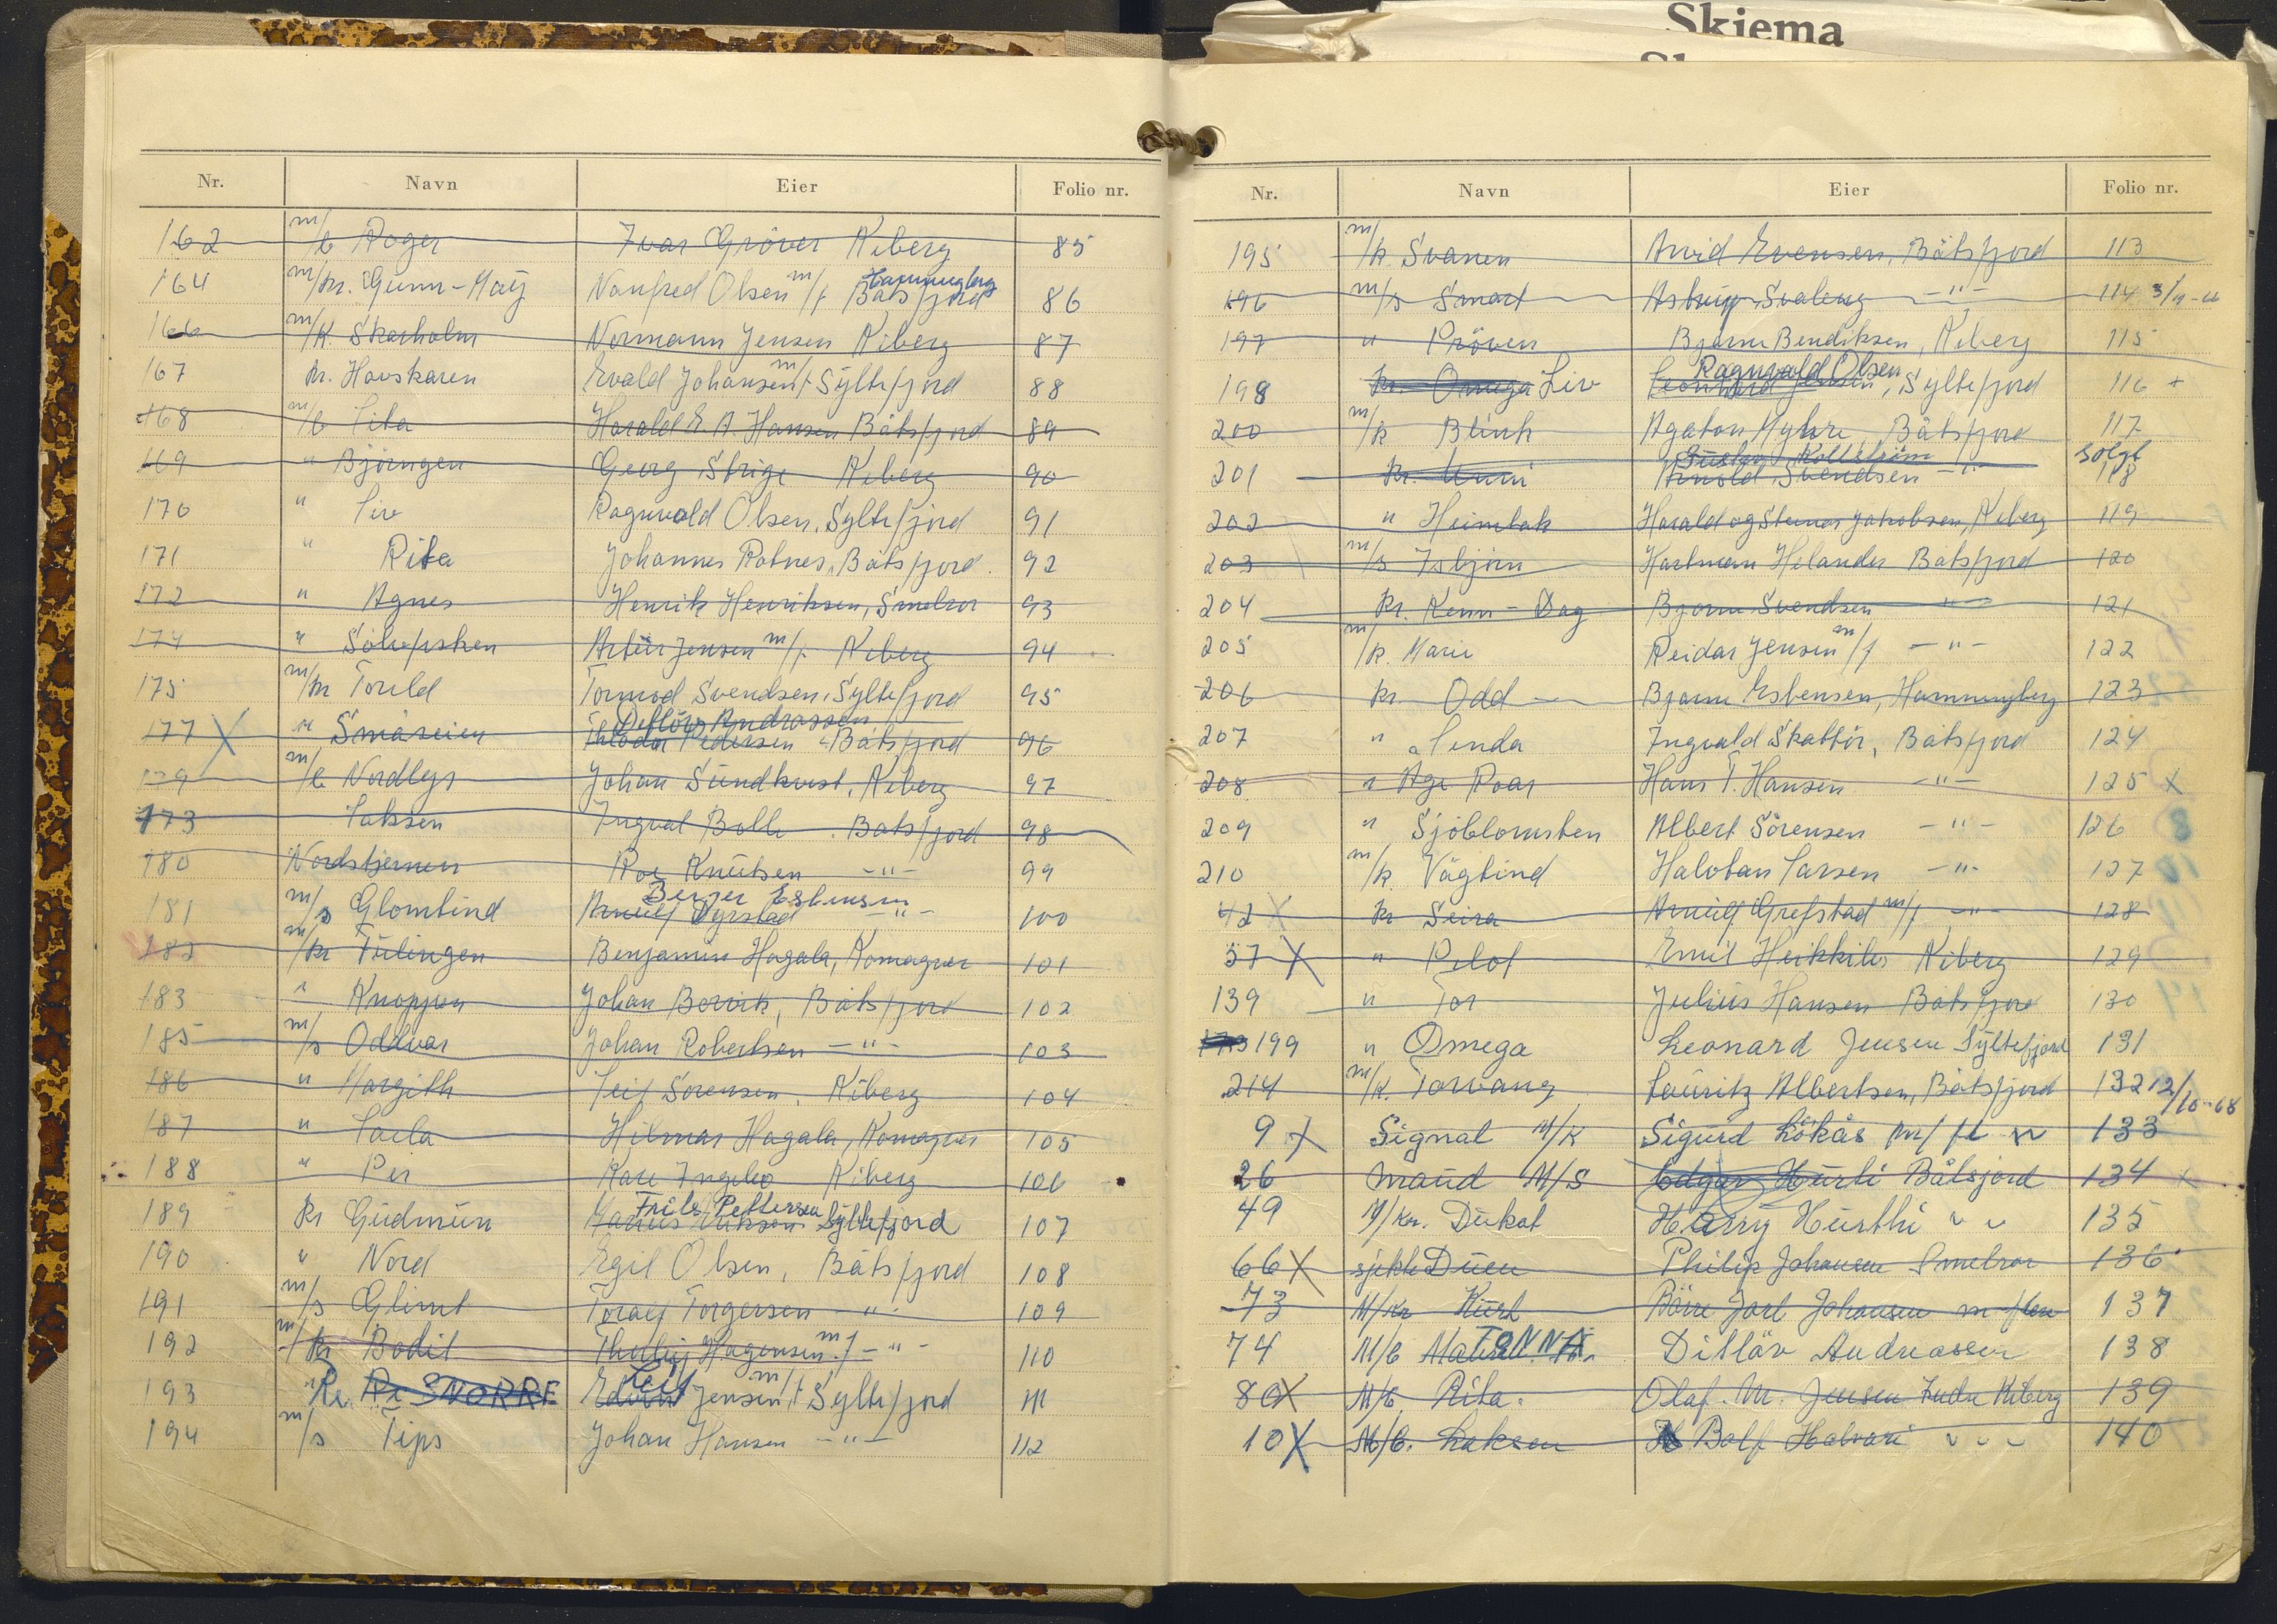 Skjema
Nr. Navn Eier Folio nr.
162 m/b Roger Ivar Gröver Kiberg 85
164 m/kr. Gunn-May Manfred Olsen m/f Hamningberg Båtsfjord 86
166 m/k. Skarholm Normann Jensen Kiberg 87
167 kr. Havskaren Evald Johansen m/f Syltefjord 88
168 m/b Lita Harald E. A. Hansen Båtsfjord 89
169 " Björngen Georg Strige Kiberg 90
170 " Liv Ragnvald Olsen, Syltefjord 91
171 " Rita Johannes Rotnes, Båtsfjord 92
172 " Agnes Henrik Henriksen, Smelror 93
174 " Sölvfisken Artur Jensen m/f. Kiberg 94
175 m/kr Torild Tormod Svendsen, Syltefjord 95
177 X " Småseien Detlöv Andrassen Theodor Pedersen Båtsfjord 96
179 m/b Nordlys Johan Sundkvist, Kiberg 97
173 Laksen Ingval Bolle. Båtsfjord 98
180 Nordstjernen Roe Knutsen -"- 99
181 m/s Glomtind Berger Esbensen Arnulf Dyrstad -"- 100
182 m/kr Tulingen Benjamin Hagala, Komagvær 101
183 " Knoppen Johan Borvik, Båtsfjord 102
185 m/s Oddvar Johan Robertsen -"- 103
186 " Margith Leif Sörensen, Kiberg 104
187 " Laila Hilmar Hagala, Komagvær 105
188 " Per Kåre Ingilæ Kiberg 106
189 kr Gudmun Frits Pettersen Syltefjord 107
190 " Nord Egil Olsen, Båtsfjord 108
191 m/s Glimt Toralf Torgersen -"- 109
192 m/kr Bodil Hagensen m/f -"- 110
193 Kr. SNORRE Leif Edvin Jensen m/f Syltefjord 111
194 m/s Tips Johan Hansen -"- 112
Nr. Navn Eier Folio nr.
195 m/k Svanen Arvid Evensen, Båtsfjord 113
196 m/s Smart Astrup Svaleng -"- 114
197 " Pröven Bjarne Bendiksen, Kiberg 115
198 kr. Omega Liv Ragnvald Olsen Leonhard Jensen, Syltefjord 116 +
200 m/k Blink Agaton Myhre Båtsfjord 117
201 kr. Unni Gustav Kollström Arnold Svendsen -"- solgt 118
202 " Heimtak Harald og Steinar Jakobsen, Kiberg 119
203 m/s Isbjörn Hartman Helander Båtsfjord 120
204 kr. Kenn-Dag Bjarne Svendsen -"- 121
205 m/k. Marie Reidar Jensen m/f -"- 122
206 kr. Odd Bjarne Esbensen, Hamningberg 123
207 " Linda Ingvald Skattör, Båtsfjord 124
208 " Åge Roar Hans T. Hansen -"- 125 X
209 " Sjöblomsten Albert Sörensen -"- 126
210 m/k. Vågtind Halvtan Larsen -"- 127
42 X kr Seira Arnulf Grefstad m/f -"- 128
57 X " Pilot Emil Heikkila Kiberg 129
139 " Tor Julius Hansen Båtsfjord 130
199 " Omega Leonard Jensen Syltefjord 131
214 m/k. Torvang Lauritz Albertsen, Båtsfjord 132 12/10-68
9 X Signal M/K Sigurd Lökås m/fl " 133
26 Maud M/S Edgar Hurti Båtsjord 134 X
49 M/kr. Dukat Harry Hurthi " " 135
66 X sjekte Duen Philip Johansen Smelror 136
73 M/kr Kurt Börre Jarl Johansen m flere 137
74 M/b TONNA Ditläv Andreassen 138
80 X M/b. Rita. Olaf. M. Jensen Indre Kiberg 139
10 X M/b. Laksen Rolf Halvari " " " 140